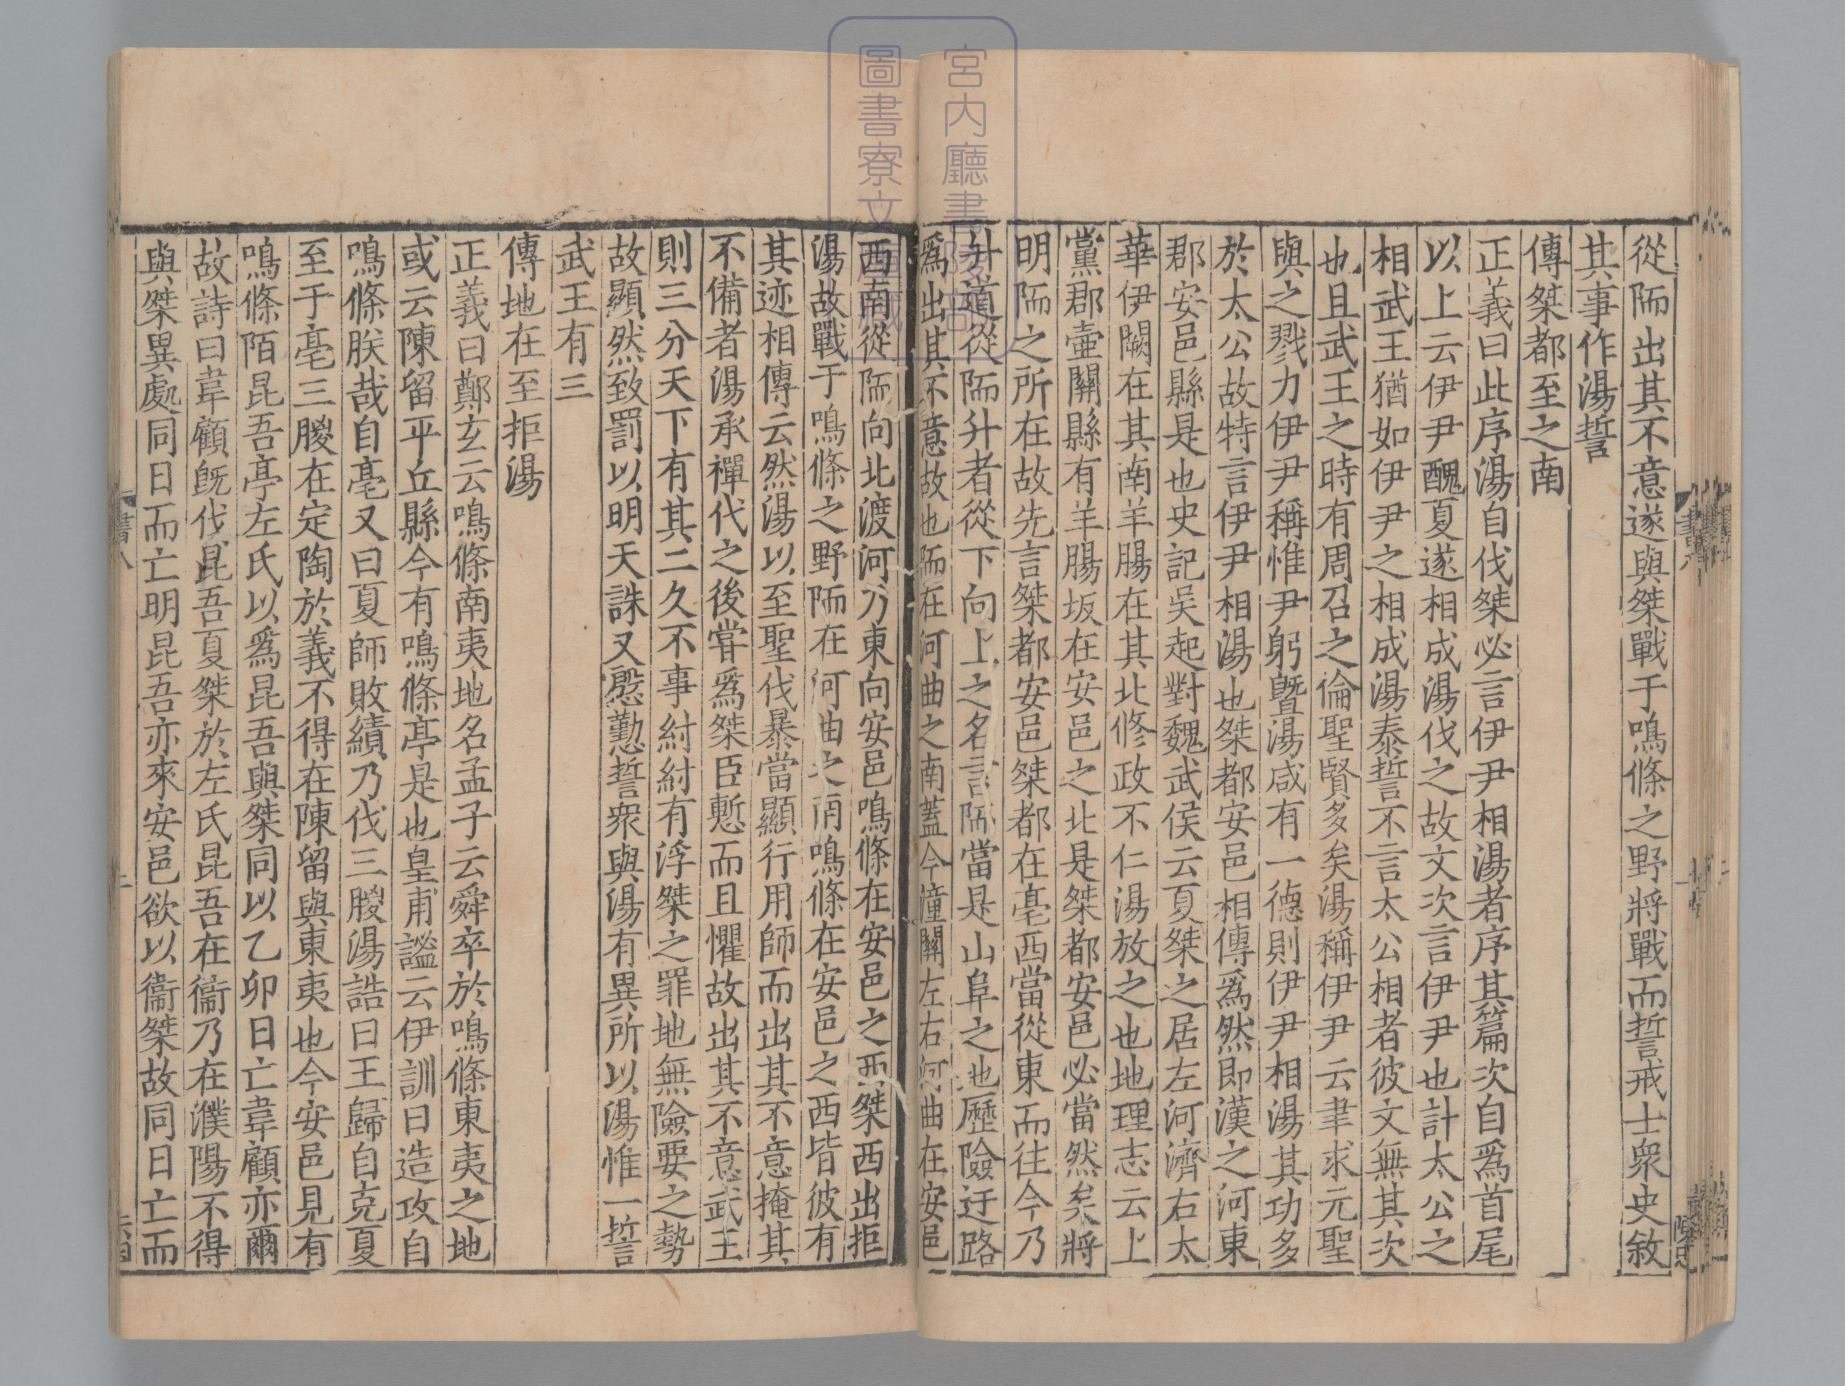 從陑出其不意遂與桀戰于鳴條之野將戰而誓戒士眾史敘
其事作湯誓
傳桀都至之南
正義曰此序湯自伐桀必言伊尹相湯者序其篇次自爲首尾
以上云伊尹醜夏遂相成湯伐之故文次言伊尹也計太公之
相武王猶如伊尹之相成湯泰誓不言太公相者彼文無其次
也且武王之時有周召之倫聖賢多矣湯稱伊尹云聿求元聖
與之戮力伊尹稱惟尹躬曁湯咸有一德則伊尹相湯其功多
於太公故特言伊尹相湯也桀都安邑相傳爲然即漢之河東
郡安邑縣是也史記吳起對魏武侯云夏桀之居左河濟右太
華伊闕在其南羊腸在其北修政不仁湯放之也地理志云上
黨郡壺關縣有羊腸坂在安邑之北是桀都安邑必當然矣將
明陑之所在故先言桀都安邑桀都在亳西當從東而往今乃
升道從陑升者從下向上之名言陑當是山阜之地歷險迂路
爲出其不意故也陑在河曲之南蓋今潼關左右河曲在安邑
西南從陑向北渡河乃東向安邑鳴條在安邑之西桀西出拒
湯故戰于鳴條之野陑在河曲之南鳴條在安邑之西皆彼有
其迹相傳云然湯以至聖伐暴當顯行用師而出其不意掩其
不備者湯承禪代之後嘗爲桀臣慙而且懼故出其不意武王
則三分天下有其二久不事紂紂有浮桀之罪地無險要之勢
故顯然致罰以明天誅又慇懃誓衆與湯有異所以湯惟一誓
武王有三
傳地在至拒湯
正義曰鄭玄云鳴條南夷地名孟子云舜卒於鳴條東夷之地
或云陳留平丘縣今有鳴條亭是也皇甫謐云伊訓曰造攻自
鳴條朕哉自亳又曰夏師敗績乃伐三朡湯誥曰王歸自克夏
至于亳三朡在定陶於義不得在陳留與東夷也今安邑見有
鳴條陌昆吾亭左氏以爲昆吾與桀同以乙卯日亡韋顧亦爾
故詩曰韋顧旣伐昆吾夏桀於左氏昆吾在衞乃在濮陽不得
與桀異處同日而亡明昆吾亦來安邑欲以衞桀故同日亡而
書八
宮内廳書陵部
圖書寮文庫藏